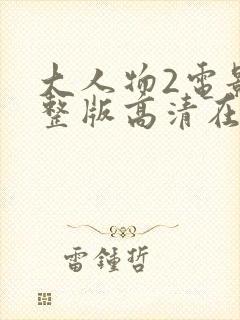 大人物2电影
整版高清在
雷锺哲